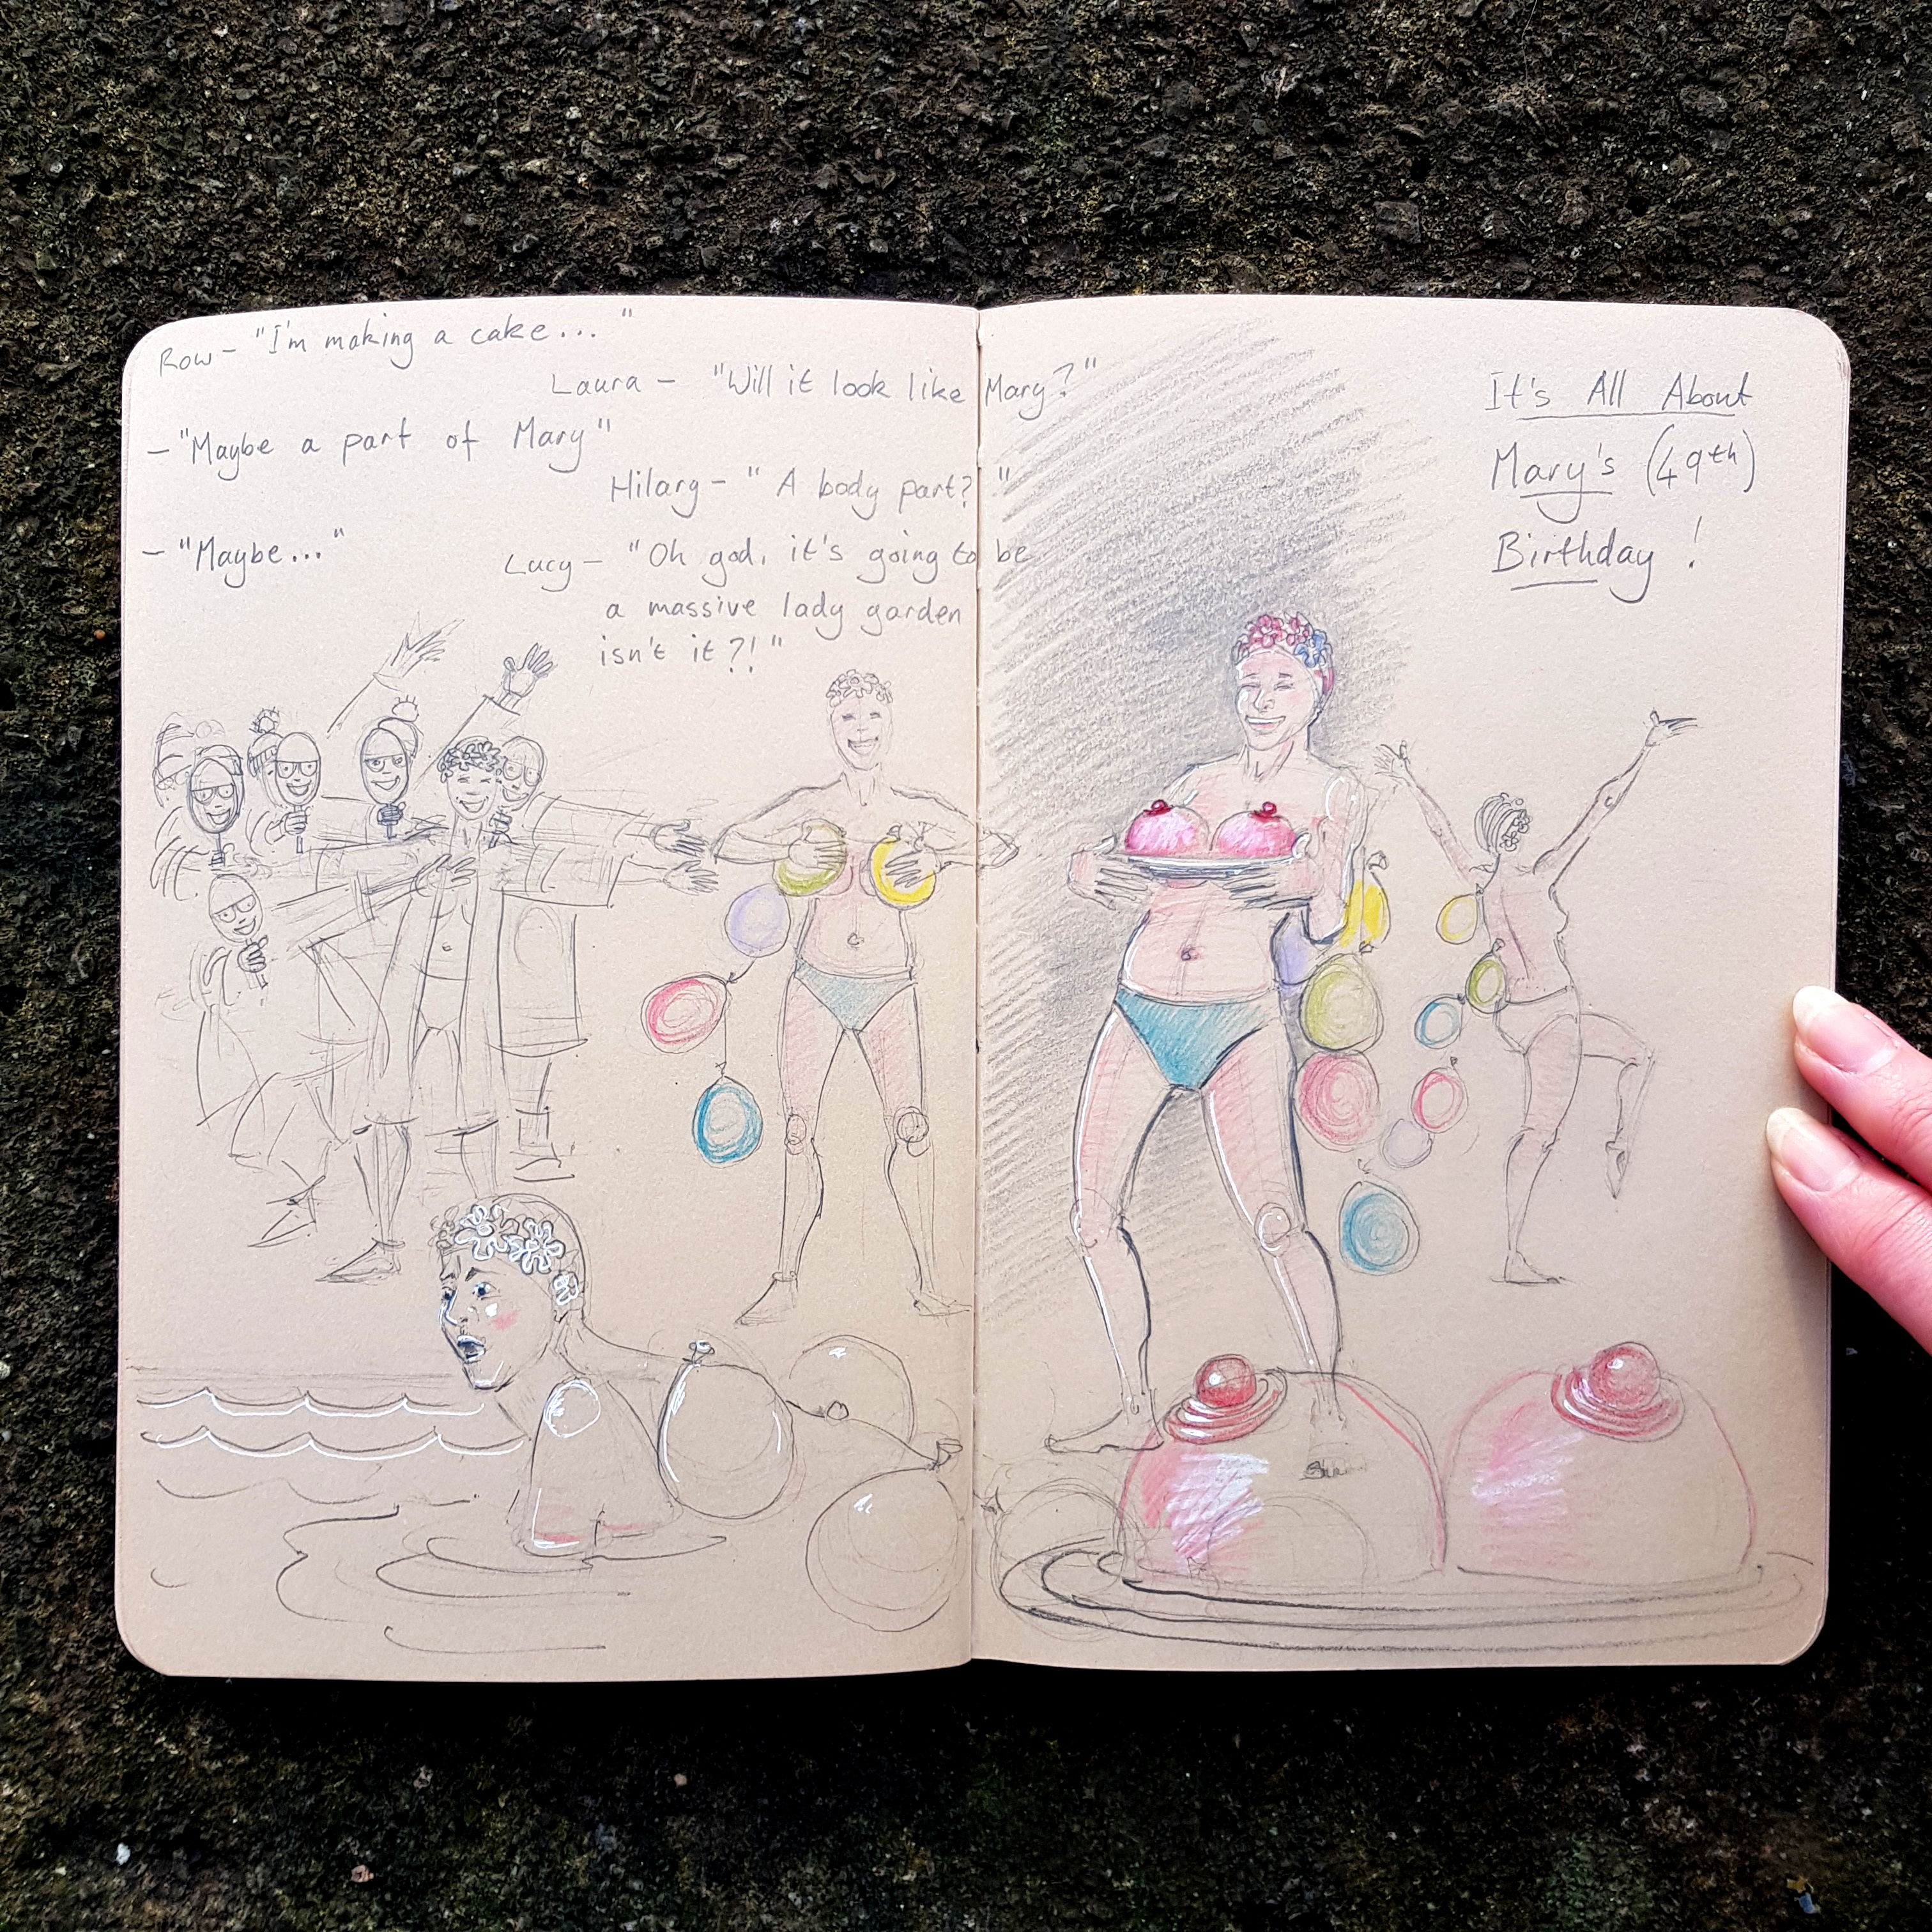 Row - "I'm making a cake..."
Laura - "Will it look like Mary?"
- "Maybe a part of Mary"
Hilary - "A body part?"
- "Maybe..."
Lucy - "Oh god, it's going to be
a massive lady garden
isn't it?!"
It's All About
Mary's (49th)
Birthday!